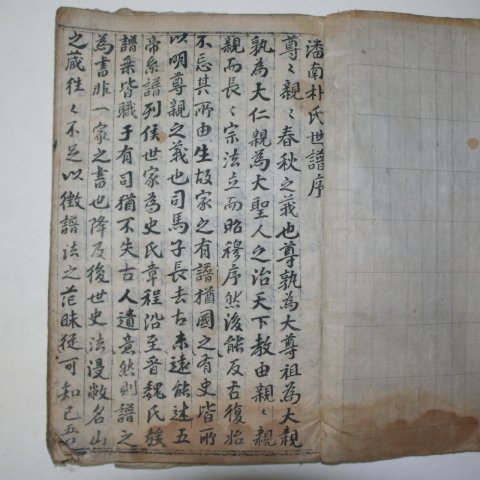 潘南朴氏世譜序
尊〻親〻春秋之義也尊孰為大尊祖為大親
孰為大仁親為大聖人之治天下教由親〻親
親而長〻宗法立而昭穆序然後能反古復始
不忘其所由生故家之有譜猶國之有史皆所
以明尊親之義也司馬子長去古未遠能述五
帝系譜列侯世家為史氏章程沿至晉魏氏族
譜乘皆職于有司猶不失古人遺意然則譜之
為書非一家之書也降及後世史法浸敝名山
之藏往〻不足以徵譜法之茫昧從可知已五